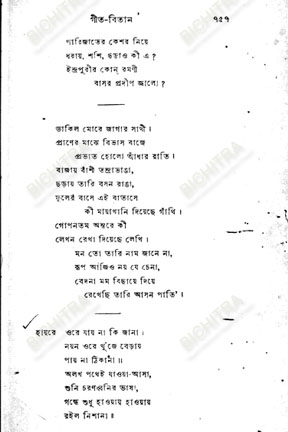 গীত-বিতান ৭৫৭
পারিজাতের কেশর নিয়ে
ধরায়, শশি, ছড়াও কী এ ?
ইন্দ্রপুরীর কোন্ রমণী
বাসর প্রদীপ জ্বালো ?
ডাকিল মোরে জাগার সাথী ।
প্রাণের মাঝে বিভাস বাজে
প্রভাত হোলো আঁধার রাতি ।
বাজায় বাঁশী তন্দ্রাভাঙা,
ছড়ায় তারি বসন রাঙা,
ফুলের বাসে এই বাতাসে
কী মায়াখানি দিয়েছে গাঁথি ।
গোপনতম অন্তরে কী
লেখন রেখা দিয়েছে লেখি ।
মন তো তারি নাম জানে না,
রূপ আজিও নয় যে চেনা,
বেদনা মম বিছায়ে দিয়ে
রেখেছি তারি আসন পাতি' ।
হায়রে ওরে যায় না কি জানা ।
নয়ন ওরে খুঁজে বেড়ায়
পায় না ঠিকানা ॥
অলখ পথেই যাওয়া-আসা,
শুনি চরণধ্বনির ভাষা,
গন্ধে শুধু হাওয়ায় হাওয়ায়
রইল নিশানা ॥
BICHITRA